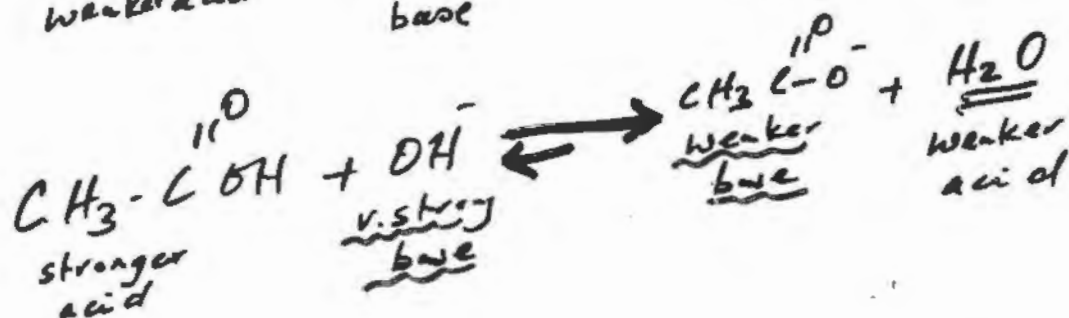 weaker acid base
O O
CH₃-C OH + OH⁻ ⇌ CH₃ C-O⁻ + H₂O
stronger acid v.strong base weaker base weaker acid